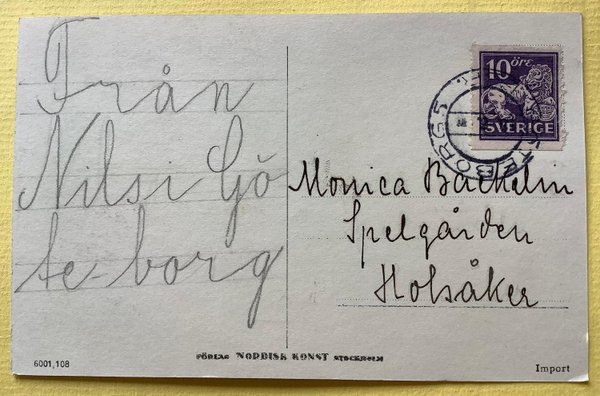 Från
Nils i Gö
te-borg
10 öre
SVERIGE
Monica Bäckelin
Spelgården
Holsåker
6001,108
FÖRLAG NORDISK KONST STOCKHOLM
Import